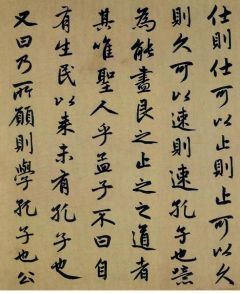 仕則仕可以止則止可以久
則久可以速則速孔子也噫
為能盡艮之止之之道者
其唯聖人乎孟子不曰自
有生民以来未有孔子也
又曰乃所願則學孔子也公